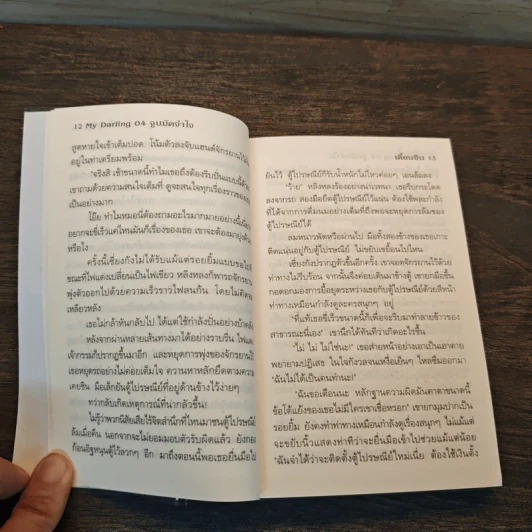 12 My Darling 04 จูบมัดจำใจ
สูดหายใจเข้าเต็มปอด โน้มตัวลงจับแฮนด์จักรยานไว้มั่น
อยู่ในท่าเตรียมพร้อม
"จริงสิ เช้าขนาดนี้ทำไมเธอถึงต้องรีบปั่นแบบนี้ด้วย
เขาถามด้วยความสนใจเต็มที่ ดูจะสนใจทุกเรื่องราวของเธอ
เป็นอย่างมาก
โอ๊ย ทำไมหมอนี่ต้องถามอะไรมากมายอย่างนี้เนี่ย
อยากจะขี่เร็วแค่ไหนมันก็เรื่องของเธอ เขาจะต้องมายุ่งด้วย
หรือไง
ครั้งนี้เซี่ยงกังไม่ได้รับแม้แต่รอยยิ้มแบบขอไปที
ขณะที่ไฟแดงเปลี่ยนเป็นไฟเขียว หลิงหลงก็พารถจักรยาน
พุ่งตัวออกไปด้วยความเร็วราวไฟลนก้น โดยไม่คิดจะ
เหลียวหลัง
เธอไม่กล้าหันกลับไป ได้แต่ใช้กำลังปั่นอย่างบ้าคลั่ง
หลังจากผ่านหลายเส้นทางมาได้อย่างราบรื่น ไฟแดง
เจ้ากรรมก็ปรากฏขึ้นมาอีก และหยุดการพุ่งของจักรยาน
เธอหยุดรถอย่างไม่ค่อยเต็มใจ ความหาหลักยึดตามความ
เคยชิน มือเล็กยันตู้ไปรษณีย์ที่อยู่ด้านข้างไว้ง่ายๆ
ทว่ากลับเกิดเหตุการณ์ที่น่ากลัวขึ้น!
ไม่รู้ว่าพวกนิสัยเสียไร้จิตสำนึกที่ไหนมาชนตู้ไปรษณีย์
ล้มเมื่อคืน นอกจากจะไม่ยอมมอบตัวรับผิดแล้ว ยังกอง
ก้อนอิฐหนุนตู้ไว้ลวกๆ อีก มาถึงตอนนี้พอเธอยื่นมือไป
เตี๋ยนซิน 13
ยันไว้ ตู้ไปรษณีย์ก็รับน้ำหนักไม่ไหวค่อยๆ เอนล้มลง
"ว้าย" หลิงหลงร้องอย่างน่าเวทนา เธอรีบกระโดด
ลงจากรถ สองมือยึดตู้ไปรษณีย์ไว้แน่น ต้องใช้พละกำลัง
ที่ได้จากการดื่มนมอย่างเต็มที่ถึงพอจะหยุดการล้มของ
ตู้ไปรษณีย์ได้
ลมหนาวพัดหรือผ่านไป มือทั้งสองข้างของเธอเกาะ
ติดแน่นอยู่กับตู้ไปรษณีย์ ไม่ขยับเขยื้อนไปไหน
เซี่ยงกังปรากฏตัวขึ้นอีกครั้ง เขาจอดจักรยานไว้ด้วย
ท่าทางไม่รีบร้อน จากนั้นจึงค่อยเดินมาข้างตู้ เขายกมือขึ้น
กอดอกมองการยื้อยุดระหว่างเธอกับตู้ไปรษณีย์ด้วยสีหน้า
ท่าทางเหมือนกำลังดูละครสนุกๆ อยู่
"ที่แท้เธอขี่เร็วขนาดนี้ก็เพื่อจะรีบมาทำลายข้าวของ
สาธารณะนี่เอง" เขานึกได้ทันทีว่าเกิดอะไรขึ้น
"ไม่ ไม่ ไม่ใช่นะ!" เธอส่ายหน้าอย่างเอาเป็นเอาตาย
พยายามปฏิเสธ ในใจกังวลจนเหงื่อเย็นๆ ไหลซึมออกมา
"ฉันไม่ได้เป็นคนทำนะ!"
"ฉันขอเตือนนะ หลักฐานความผิดมันคาตาขนาดนี้
ข้อโต้แย้งของเธอไม่มีใครเขาเชื่อหรอก" เขายกมุมปากเป็น
รอยยิ้ม ยังคงทำท่าทางเหมือนกำลังดูเรื่องสนุกๆ ไม่มีแม้แต่
จะขยับนิ้วแสดงท่าทีว่าจะยื่นมือเข้าไปช่วยแม้แต่น้อย
"ฉันจำได้ว่าจะติดตั้งตู้ไปรษณีย์ใหม่เนี่ย ต้องใช้เงินตั้ง